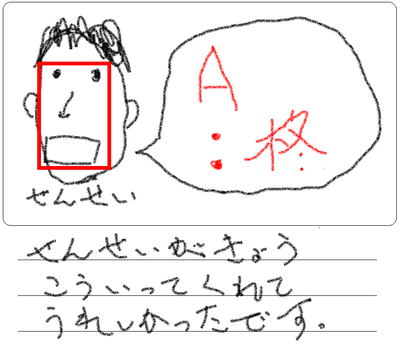 A
: 柊
せんせい
せんせいがきょう
こういってくれて
うれしかったです。